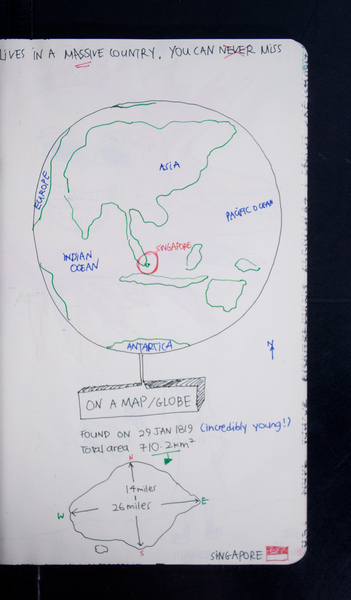 LIVES IN A MASSIVE COUNTRY. YOU CAN NEVER MISS
EUROPE
ASIA
PACIFIC OCEAN
SINGAPORE
INDIAN
OCEAN
ANTARTICA
N
ON A MAP/GLOBE
FOUND ON 29 JAN 1819 (incredibly young!)
Total area 710.2km²
N
14miles
26miles
W
E
S
SINGAPORE